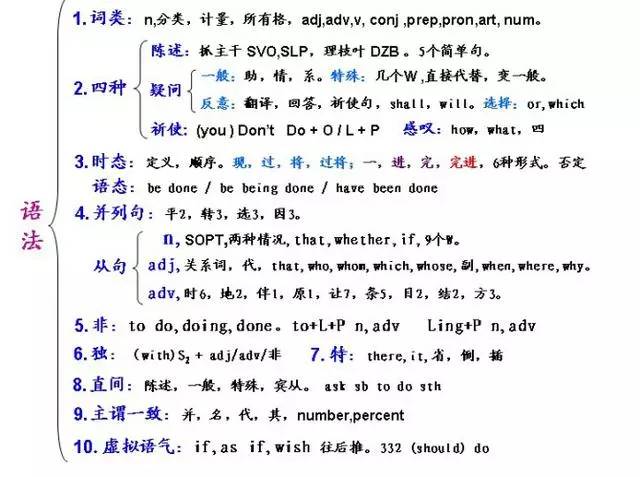 语法
1. 词类: n,分类, 计量, 所有格, adj,adv,v, conj ,prep,pron,art, num。
2. 四种
陈述: 抓主干 SVO,SLP, 理枝叶 DZB 。5个简单句。
疑问
一般: 助, 情, 系。特殊: 几个W ,直接代替, 变一般。
反意: 翻译, 回答, 祈使句, shall, will。选择: or,which
祈使: (you ) Don't Do + O / L + P 感叹: how, what, 四
3. 时态: 定义, 顺序。现, 过, 将, 过将; 一, 进, 完, 完进, 6种形式。否定
语态: be done / be being done / have been done
4. 并列句: 平2, 转3, 选3, 因3。
从句
n, SOPT,两种情况, that,whether,if,9个W。
adj,关系词, 代, that,who,whom,which,whose,副,when,where,why。
adv,时6, 地2, 伴1, 原1, 让7, 条5, 目2, 结2, 方3。
5. 非: to do,doing,done。to+L+P n,adv Ling+P n,adv
6. 独: (with)S2 + adj/adv/非 7. 特: there,it,省, 倒, 插
8. 直间: 陈述, 一般, 特殊, 宾从。ask sb to do sth
9. 主谓一致: 并, 名, 代, 其, number,percent
10. 虚拟语气: if,as if,wish 往后推。332 (should) do